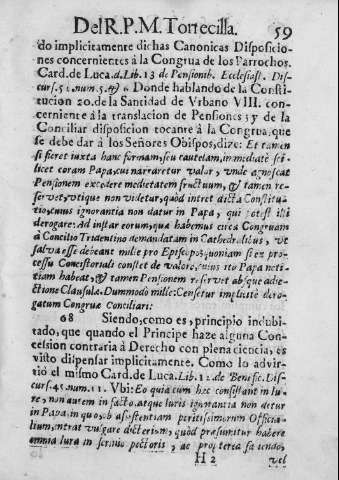 Del R. P. M. Torrecilla. 59
do implicitamente dichas Canonicas Disposicio-
nes concernientes à la Congrua de los Parrochos.
Card. de Luca. d. Lib. 13 de Pensionib. Ecclesiast. Dis-
curs. 51. num. 5. & 6 Donde hablando de la Consti-
tucion 20. de la Santidad de Vrbano VIII. con-
cerniente à la translacion de Pensiones; y de la
Conciliar disposicion tocante à la Congrua, que
se debe dar à los Señores Obispos, dize: Et tamen
si fieret iuxta hanc formam, seu cautelam, immediatè sci-
licet coram Papa, cui narraretur valor, vnde agnoscat
Pensionem excedere medietatem fructuum, & tamen re-
servet, vtique non videtur, quòd intret dicta Constitu-
tio, cuius ignorantia non datur in Papa, qui potest illi
derogare: Ad instar eorum, quæ habemus circa Congruam
à Concilio Tridentino demandatam in Cathedralibus, vt
salva esse debeant mille pro Episcopo, quoniam si ex pro-
cessu Concistoriali constet de valore, cuius ito Papa noti-
tiam habeat, & tamen Pensionem reservet absque adie-
ctione Clausulæ. Dummodò mille: Censetur implicitè dero-
gatum Congruæ Conciliari:
68 Siendo, como es, principio indubi-
tado, que quando el Principe haze alguna Con-
cession contraria à Derecho con plena ciencia, es
visto dispensar implicitamente. Como lo advir-
tiò el mismo Card. de Luca. Lib. 12. de Benefic. Dis-
curs. 45. num. 11. Vbi: Eo quia cum hæc consistant in Iu-
re, non autem in facto, atque Iuris ignorantia non detur
in Papa, in quo, ob assistentiam peritissimorum Officia-
lium, intrat vulgare dicterium, quòd præsumitur habere
omnia Iura in scrinio pectoris, ac propterea faciendo,
H 2 vel